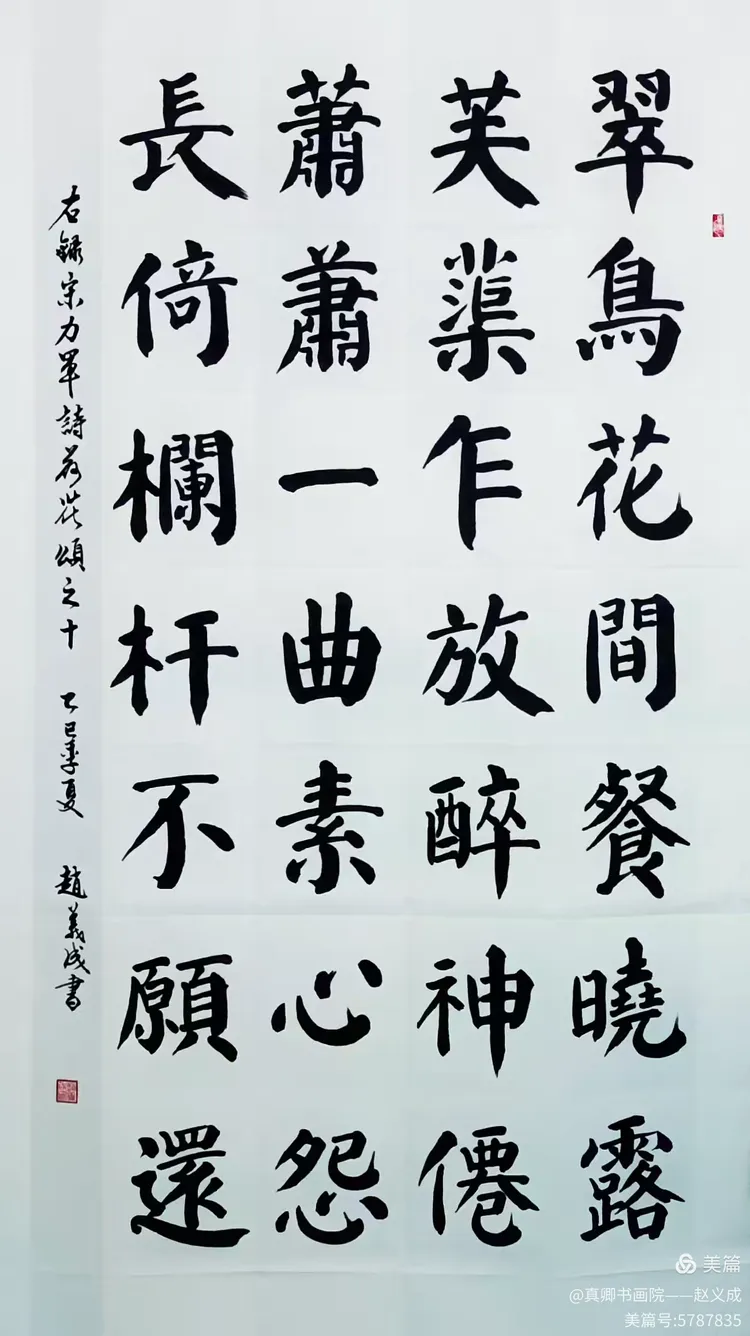 翠鳥花間餐曉露
芙蕖乍放醉神僊
蕭蕭一曲素心怨
長倚欄杆不願還
右録宗力軍詩荷花頌之十 乙巳季夏 趙義成書
美篇
@真卿书画院——赵义成
美篇号:5787835